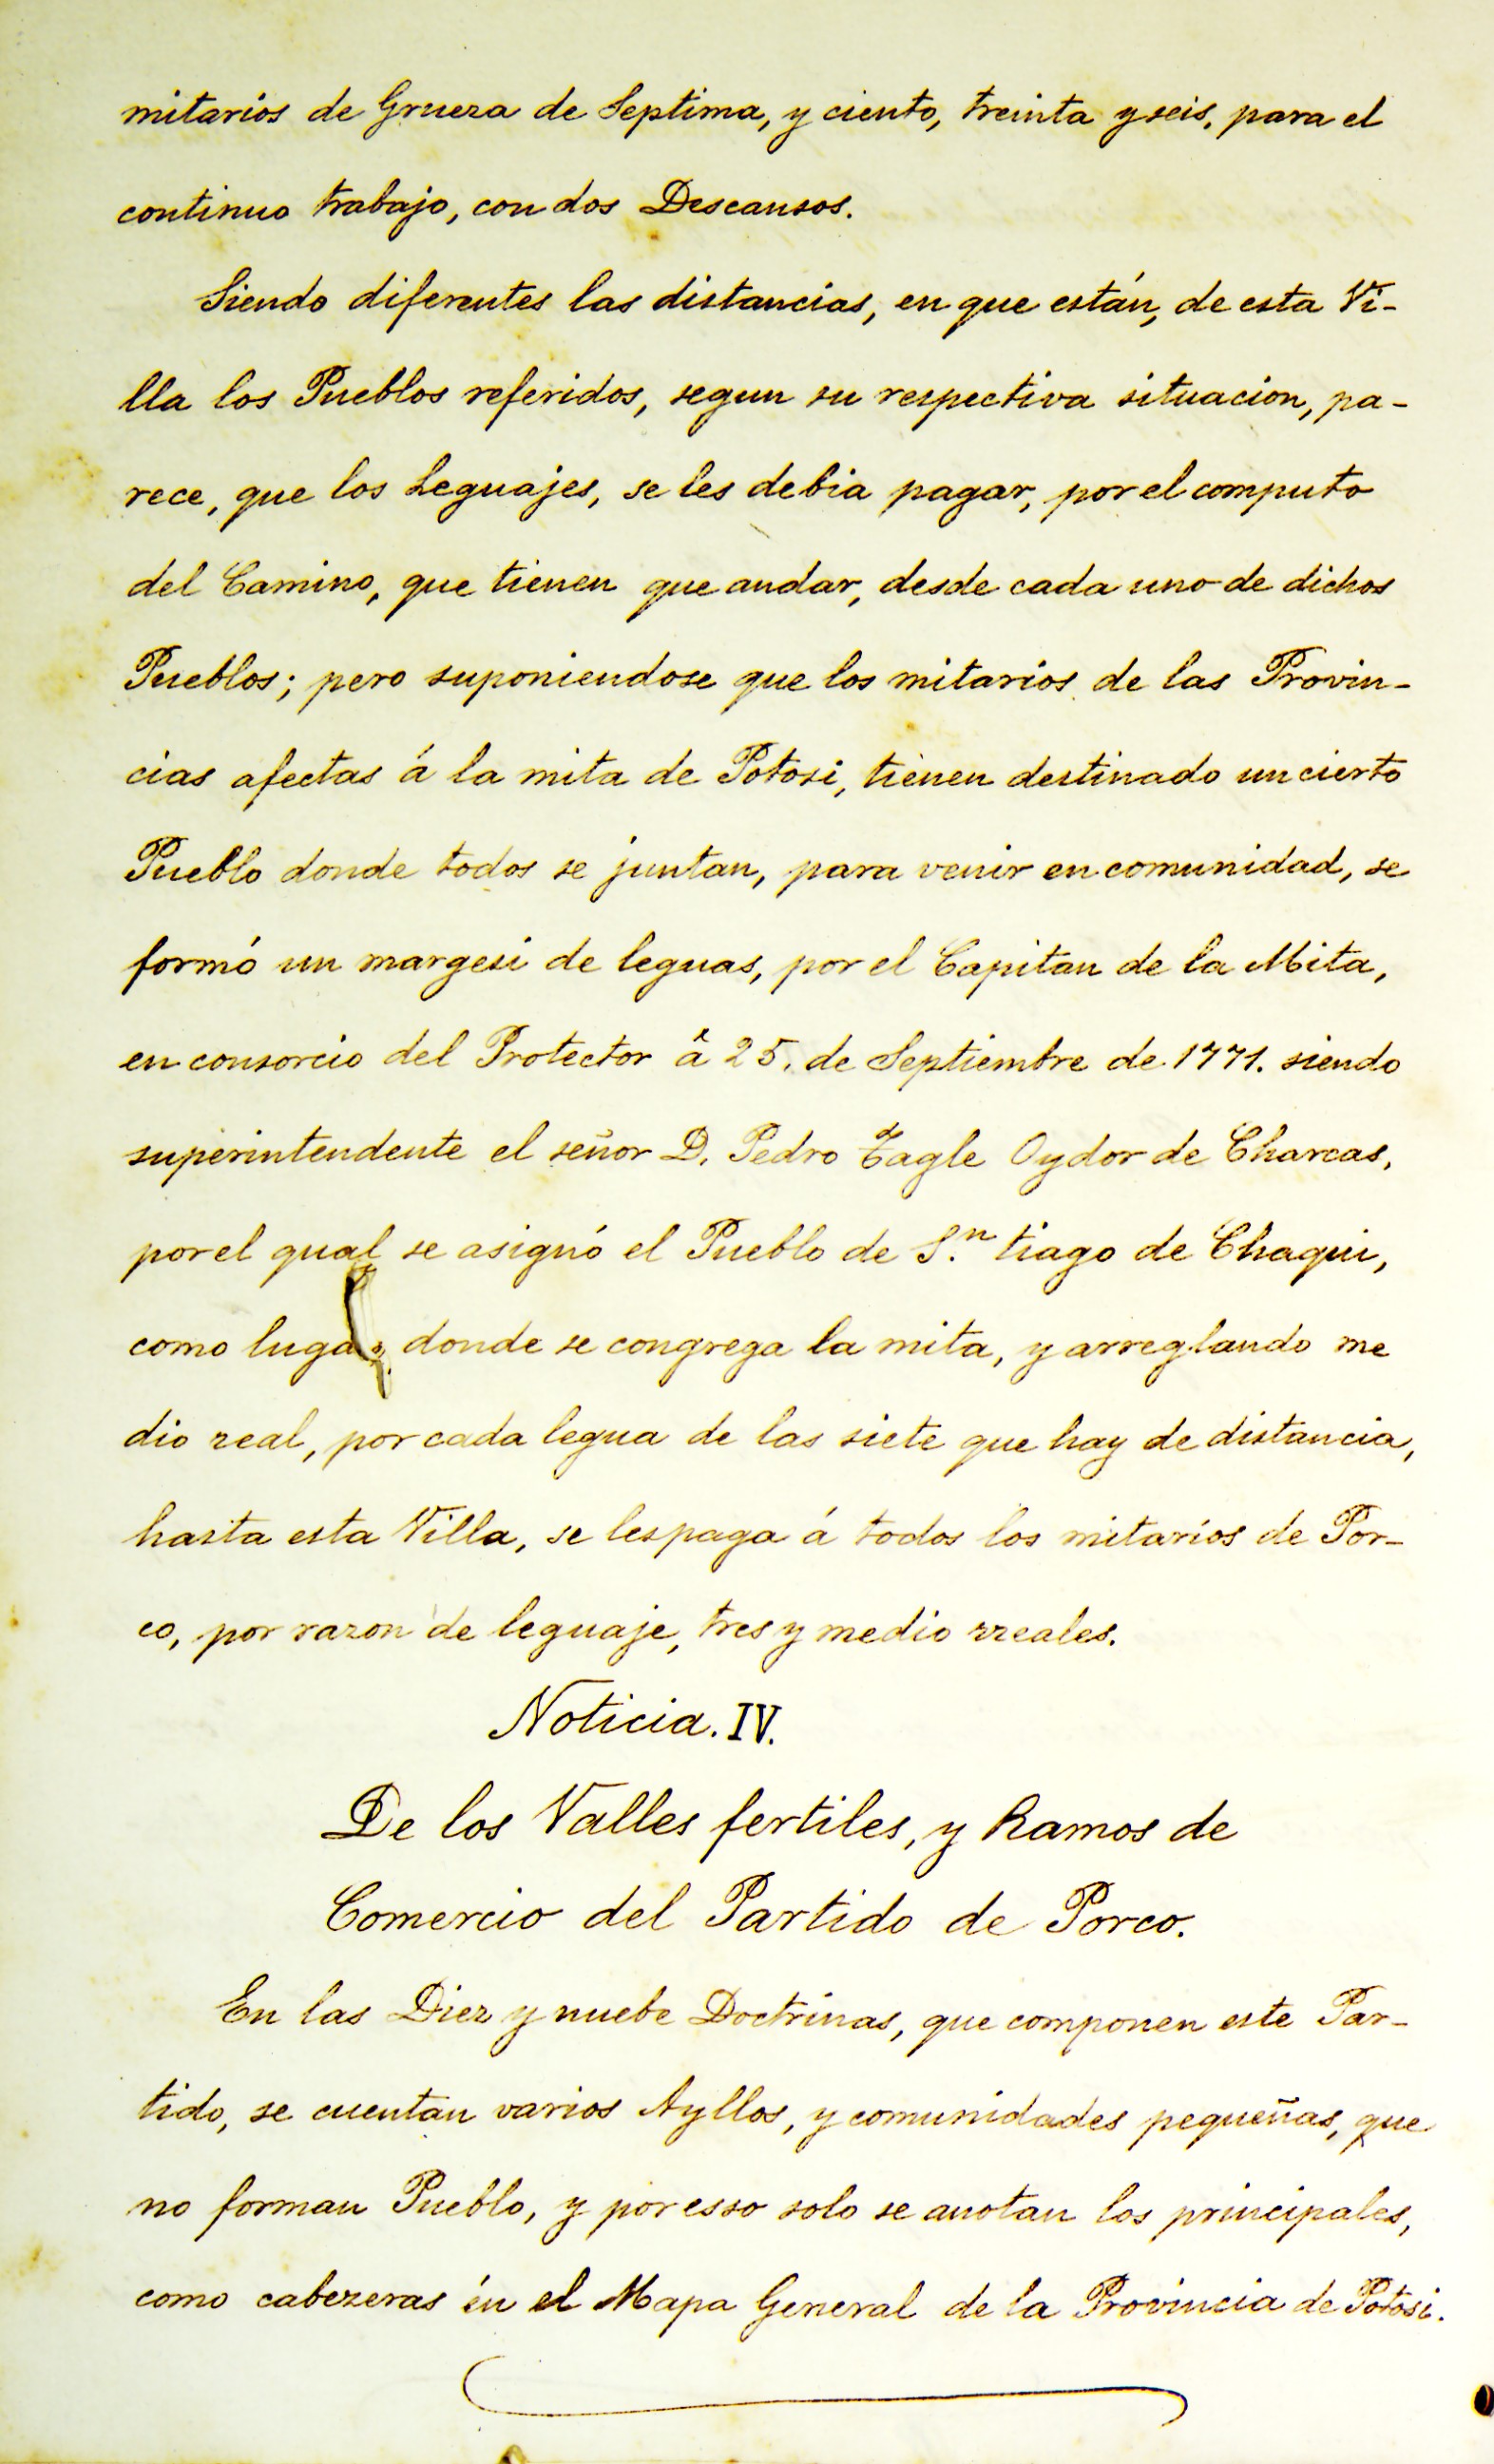 mitarios de Grueza de Septima, y ciento, treinta y seis, para el
continuo trabajo, con dos Descansos.
Siendo diferentes las distancias, en que están, de esta Vi-
lla los Pueblos referidos, segun su respectiva situacion, pa-
rece, que los Leguajes, se les debia pagar, por el computo
del Camino, que tienen que andar, desde cada uno de dichos
Pueblos; pero suponiendose que los mitarios de las Provin-
cias afectas á la mita de Potosi, tienen destinado un cierto
Pueblo donde todos se juntan, para venir en comunidad, se
formó un margesi de leguas, por el Capitan de la Mita,
en consorcio del Protector â 25. de Septiembre de 1771. siendo
superintendente el señor D. Pedro Tagle Oydor de Charcas,
por el qual se asignó el Pueblo de S.n tiago de Chaqui,
como lugar, donde se congrega la mita, y arreglando me
dio real, por cada legua de las siete que hay de distancia,
hasta esta Villa, se les paga á todos los mitarios de Por-
co, por razon de leguaje, tres y medio rreales.
Noticia. IV.
De los Valles fertiles, y Ramos de
Comercio del Partido de Porco.
En las Diez y nuebe Doctrinas, que componen este Par-
tido, se cuentan varios Ayllos, y comunidades pequeñas, que
no forman Pueblo, y por esso solo se anotan los principales,
como cabezeras én el Mapa General de la Provincia de Potosi.